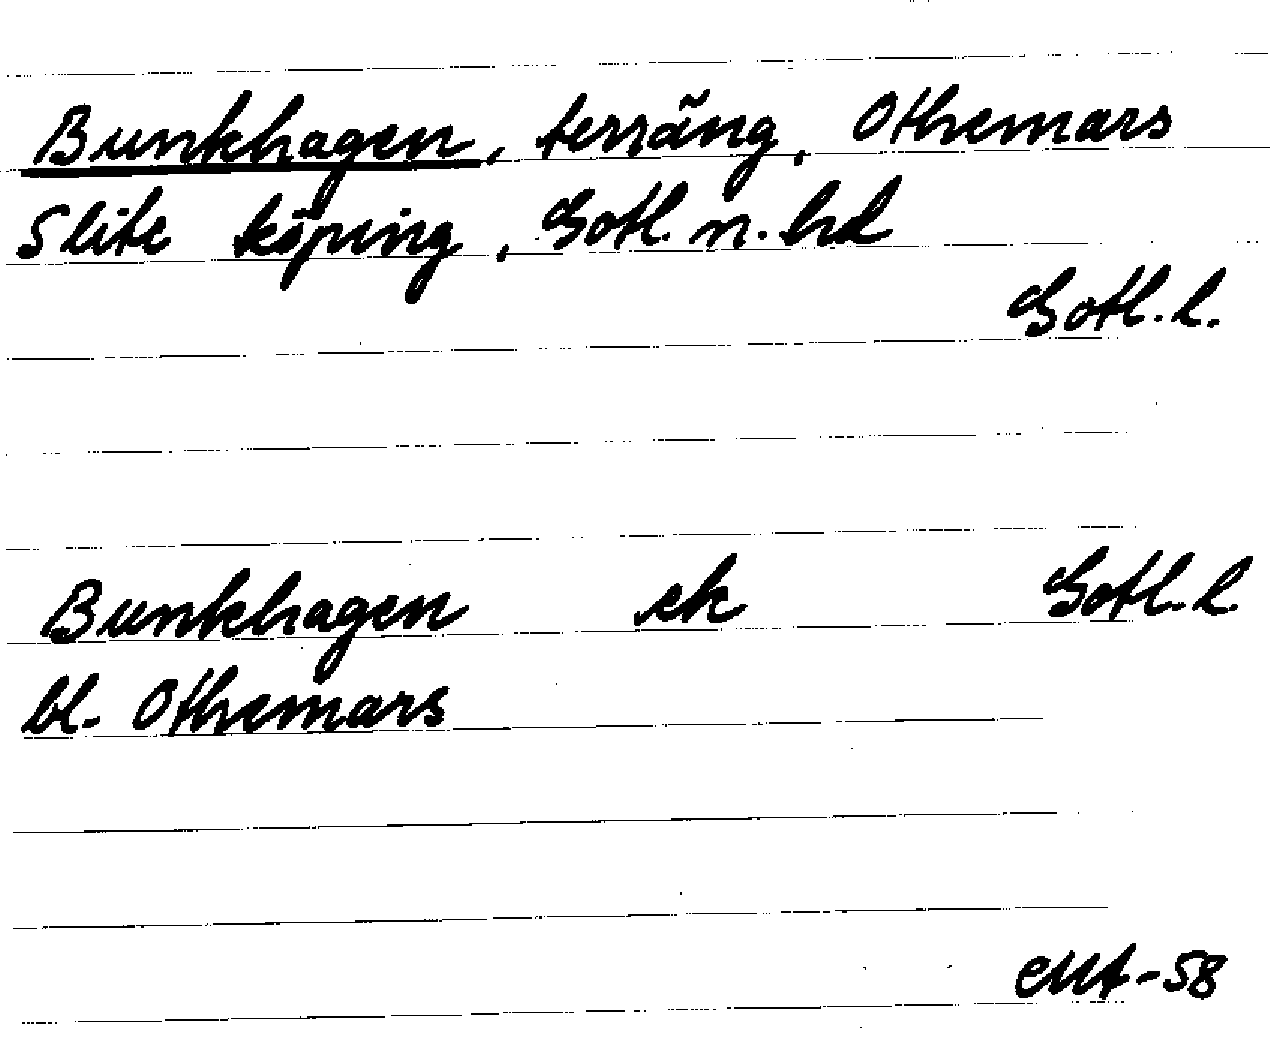 Bunkhagen, terräng, Othemars
Slite köping, Gotl. n. hd
Gotl. l.
Bunkhagen ek Gotl. l
bl. Othemars
-58